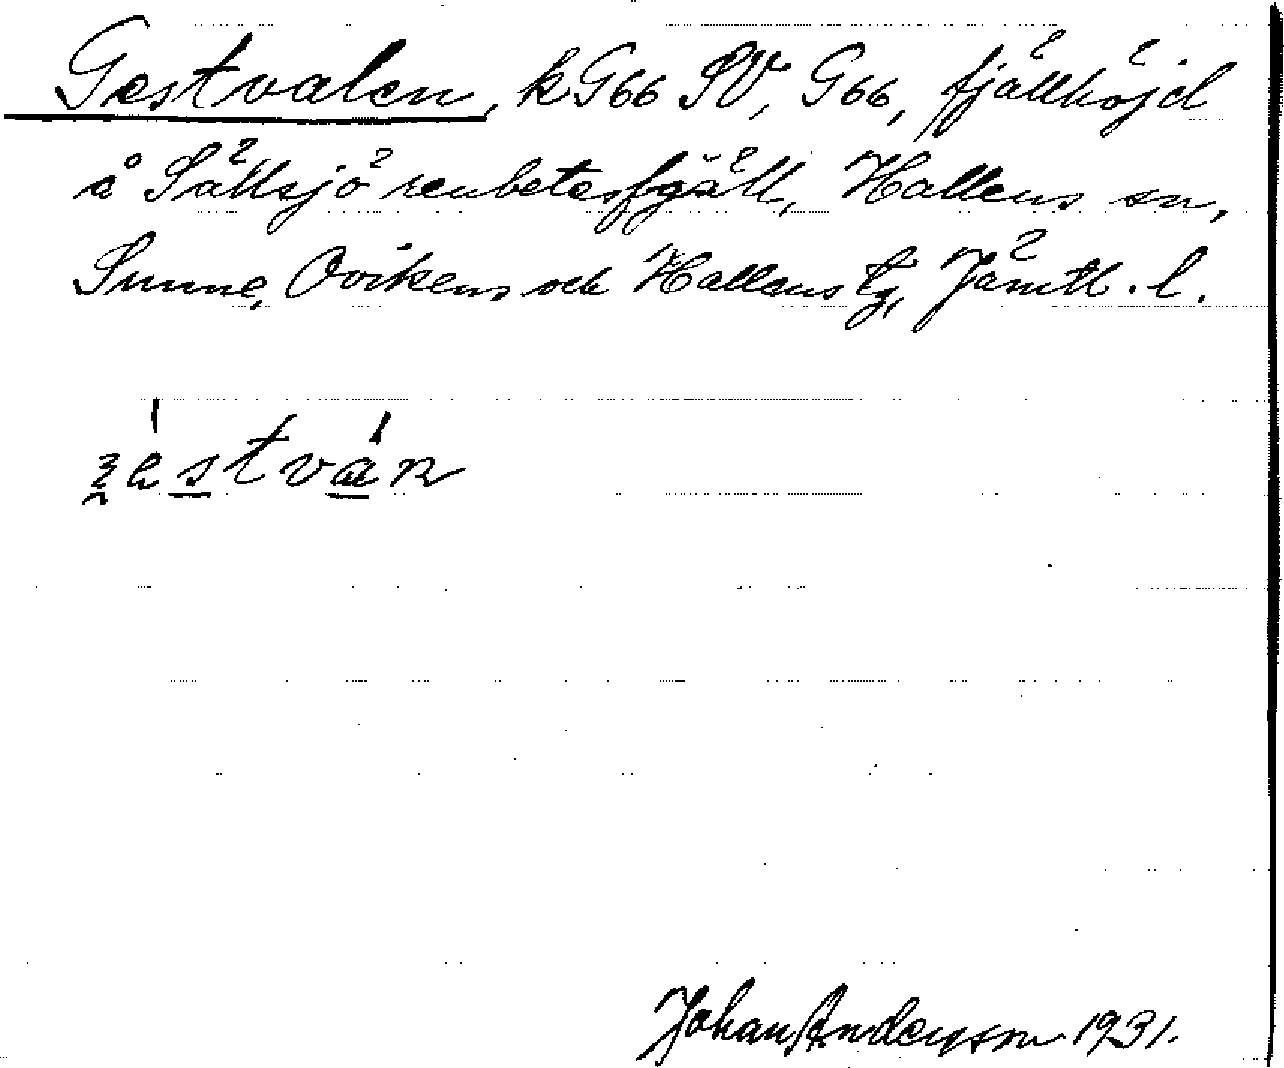 Gestvalen, k G66 SV, G66, fjällhöjd
å Sällsjö renbetesfjäll, Hallens sn,
Sunne, Ovikens och Hallens tg, Jämtl. l.
Johan Anderson 1931.